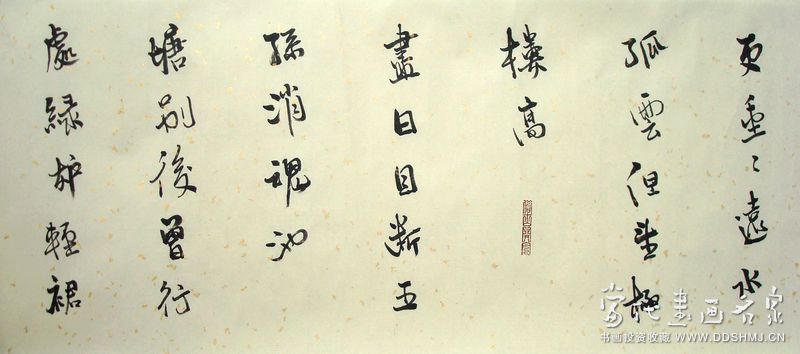 更重々遠水
孤雲但望極
樓高
盡日目斷王
孫消魂池
塘別後曾行
處緑妒輕裙
當代書画名家
书画投资收藏 WWW.DDSHMJ.CN